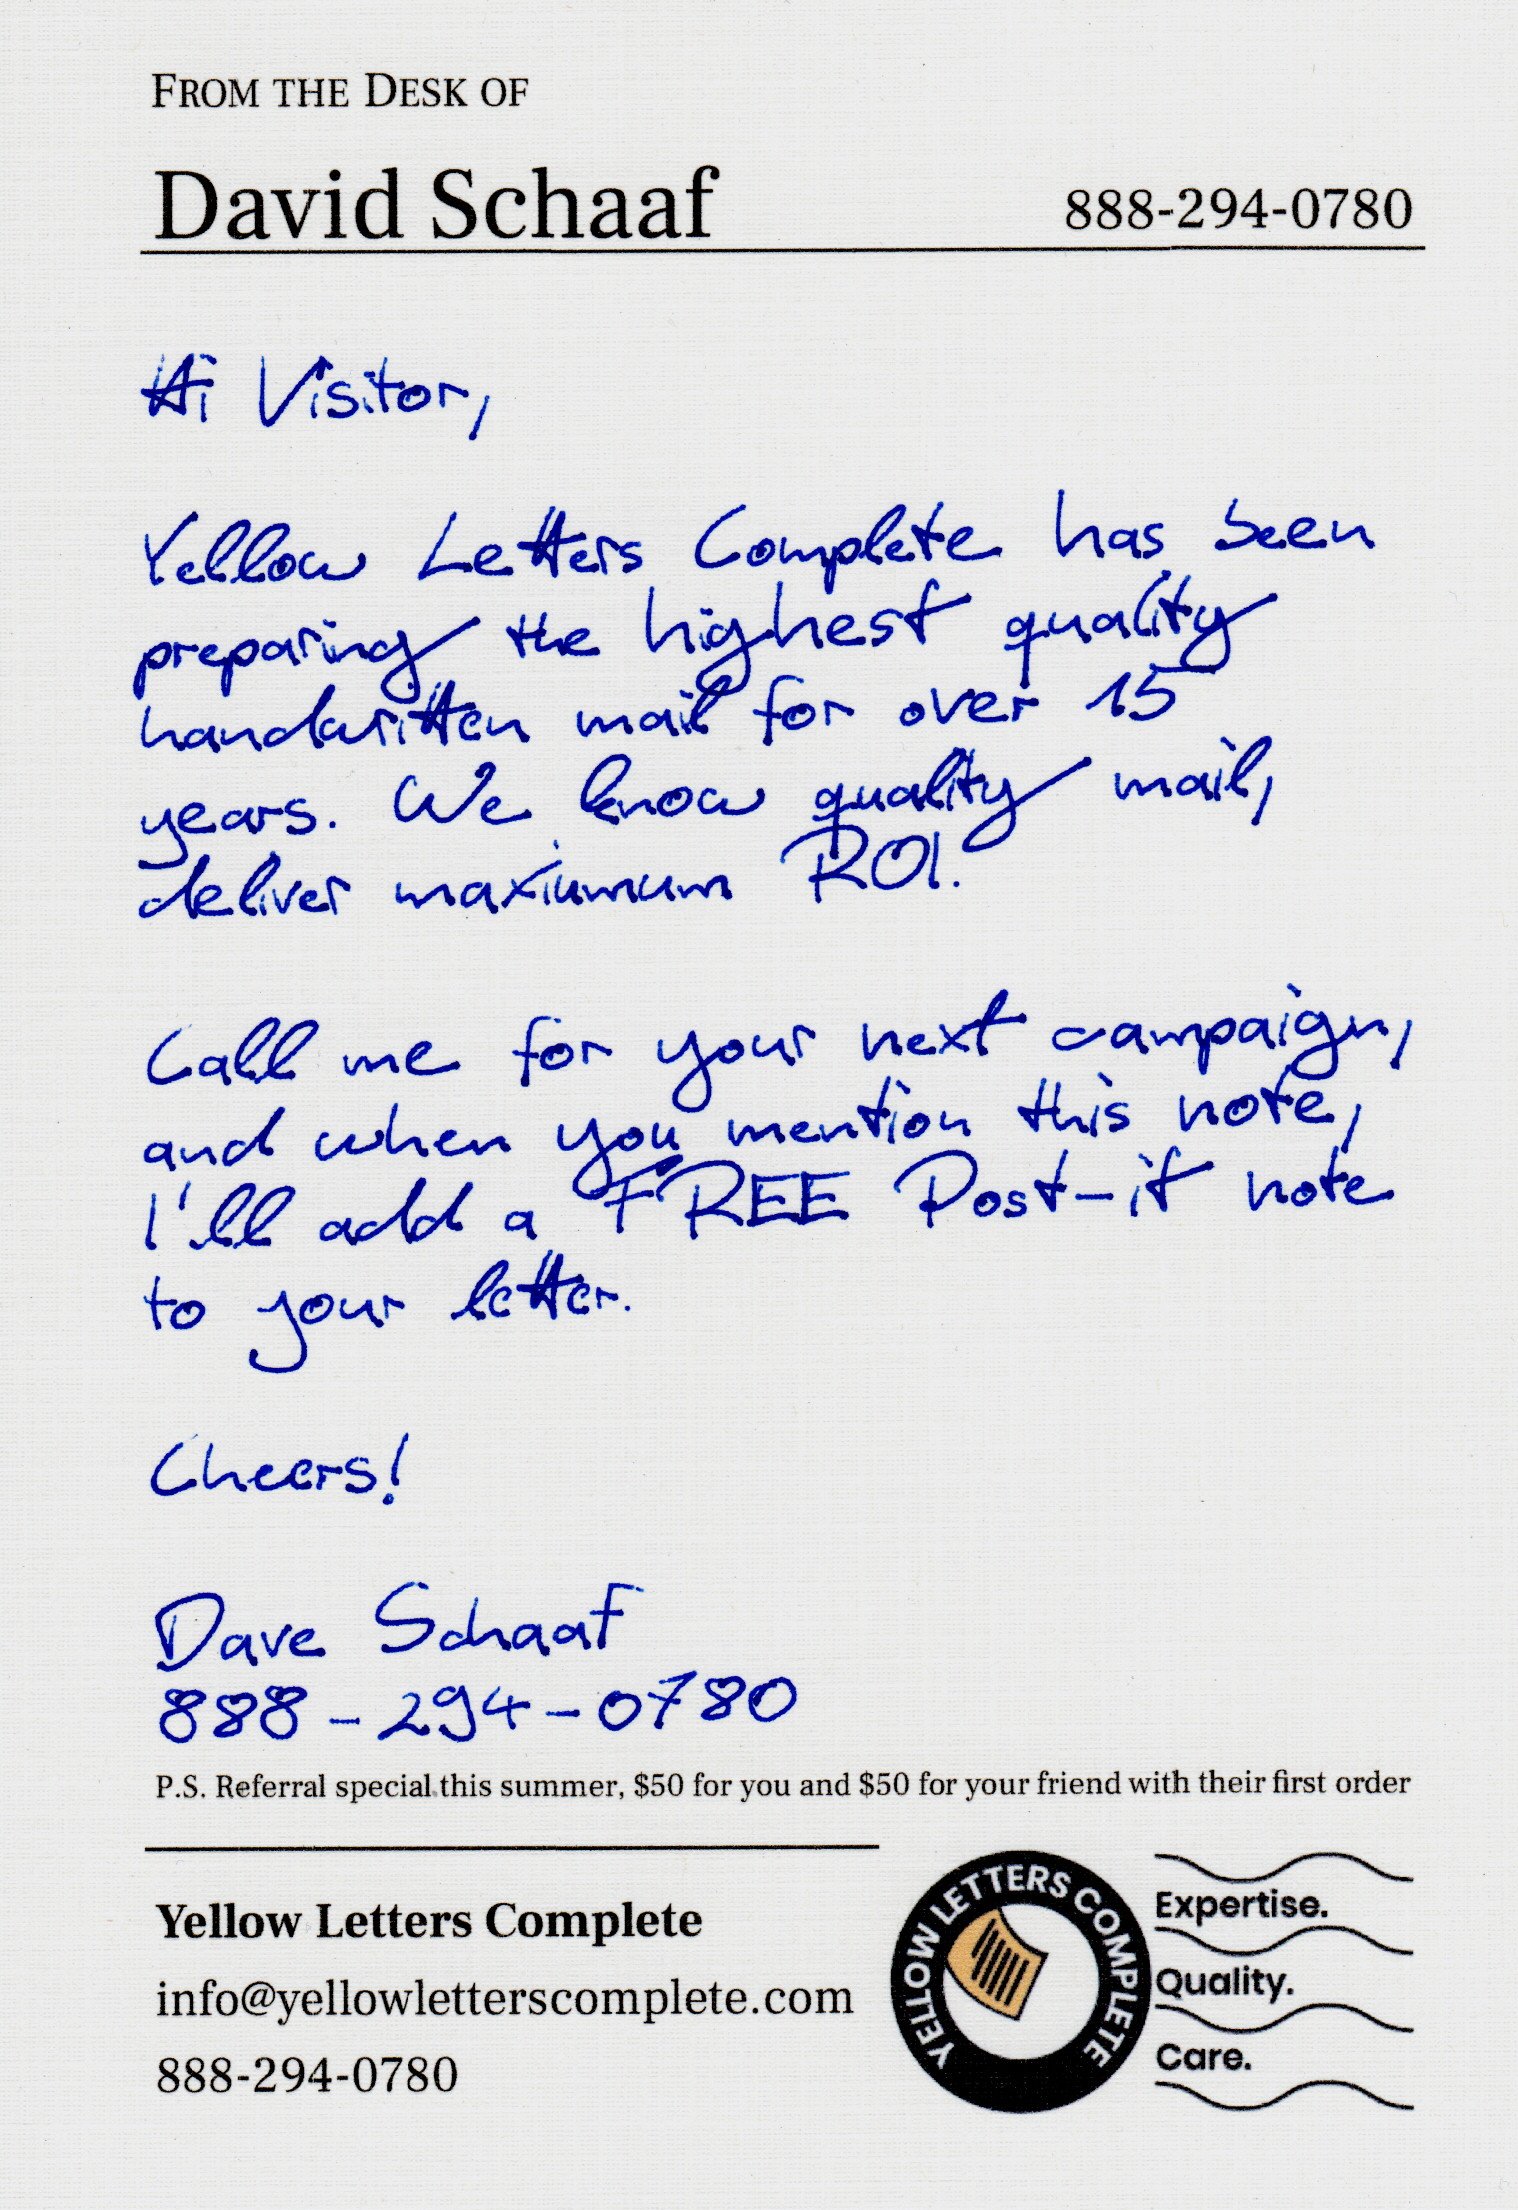 FROM THE DESK OF
David Schaaf 888-294-0780
Hi Visitor,
Yellow Letters Complete has been
preparing the highest quality
handwritten mail for over 15
years. We know quality mail,
deliver maxiumum ROI.
Call me for your next campaign,
and when you mention this note,
I'll add a FREE Post-it note
to your letter.
Cheers!
Dave Schaaf
888-294-0780
P.S. Referral special this summer, $50 for you and $50 for your friend with their first order
Yellow Letters Complete
info@yellowletterscomplete.com
888-294-0780
YELLOW LETTERS COMPLETE
Expertise.
Quality.
Care.